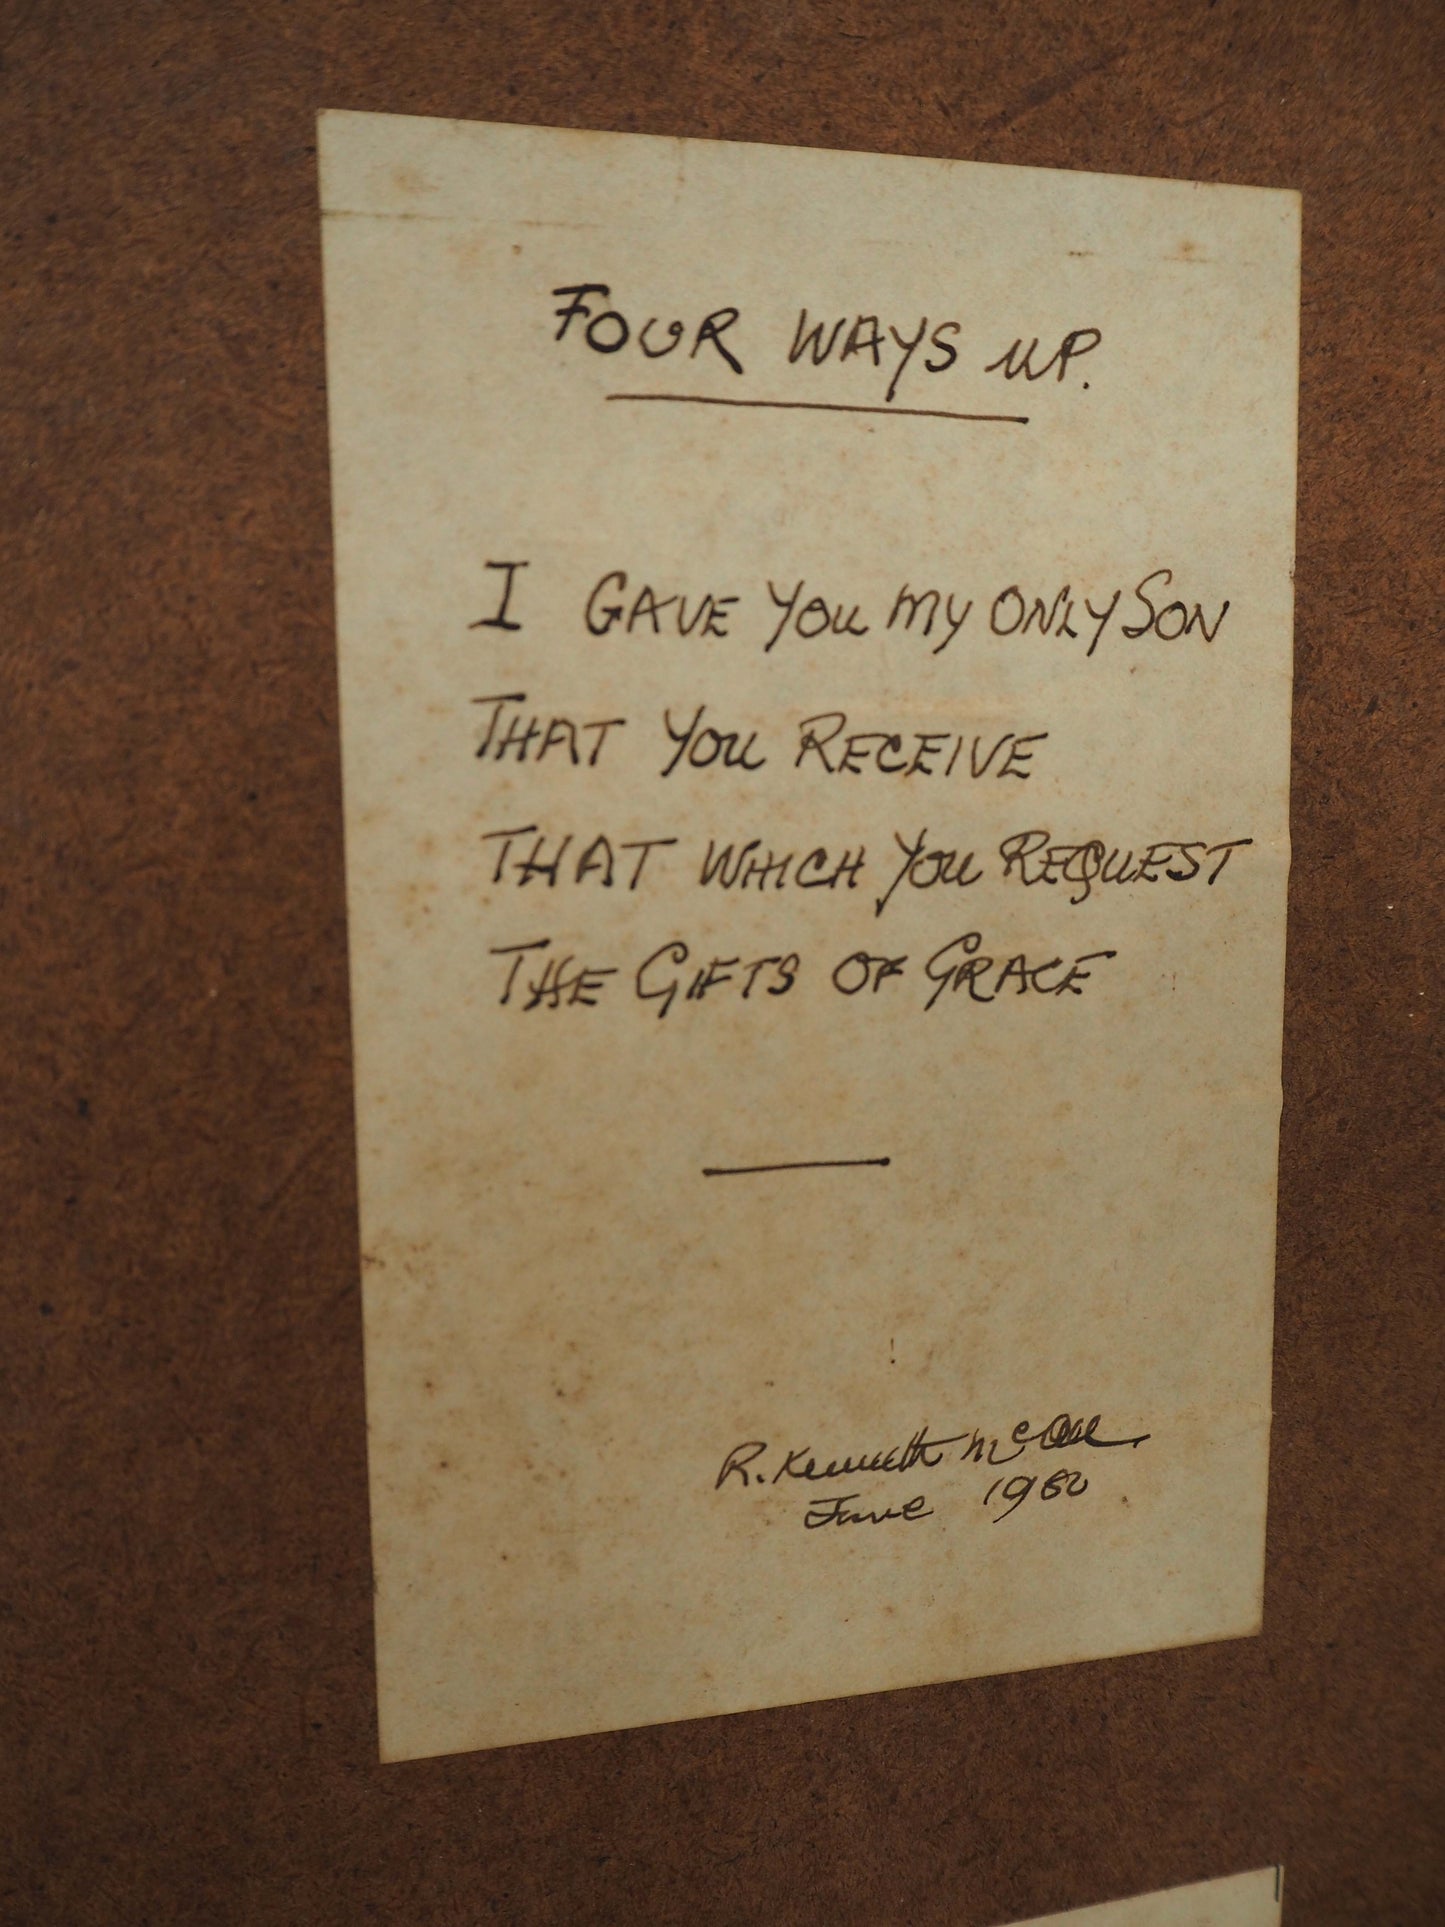 FOUR WAYS UP.
I GAVE YOU MY ONLY SON
THAT YOU RECEIVE
THAT WHICH YOU REQUEST
THE GIFTS OF GRACE
R. Kenneth
June